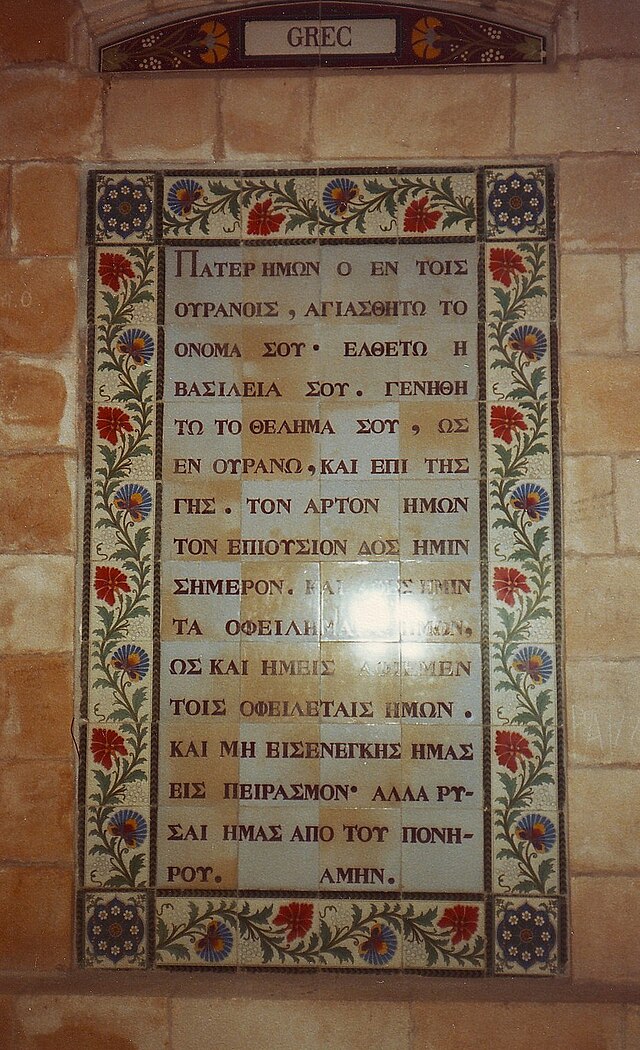 GREC
ΠΑΤΕΡ ΗΜΩΝ Ο ΕΝ ΤΟΙΣ
ΟΥΡΑΝΟΙΣ , ΑΓΙΑΣΘΗΤΩ ΤΟ
ΟΝΟΜΑ ΣΟΥ· ΕΛΘΕΤΩ Η
ΒΑΣΙΛΕΙΑ ΣΟΥ. ΓΕΝΗΘΗ
ΤΩ ΤΟ ΘΕΛΗΜΑ ΣΟΥ , ΩΣ
ΕΝ ΟΥΡΑΝΩ , ΚΑΙ ΕΠΙ ΤΗΣ
ΓΗΣ . ΤΟΝ ΑΡΤΟΝ ΗΜΩΝ
ΤΟΝ ΕΠΙΟΥΣΙΟΝ ΔΟΣ ΗΜΙΝ
ΣΗΜΕΡΟΝ. ΚΑΙ ΗΜΙΝ
ΤΑ ΗΜΩΝ,
ΩΣ ΚΑΙ ΗΜΕΙΣ
ΤΟΙΣ ΟΦΕΙΛΕΤΑΙΣ ΗΜΩΝ .
ΚΑΙ ΜΗ ΕΙΣΕΝΕΓΚΗΣ ΗΜΑΣ
ΕΙΣ ΠΕΙΡΑΣΜΟΝ· ΑΛΛΑ ΡΥ-
ΣΑΙ ΗΜΑΣ ΑΠΟ ΤΟΥ ΠΟΝΗ-
ΡΟΥ. ΑΜΗΝ.